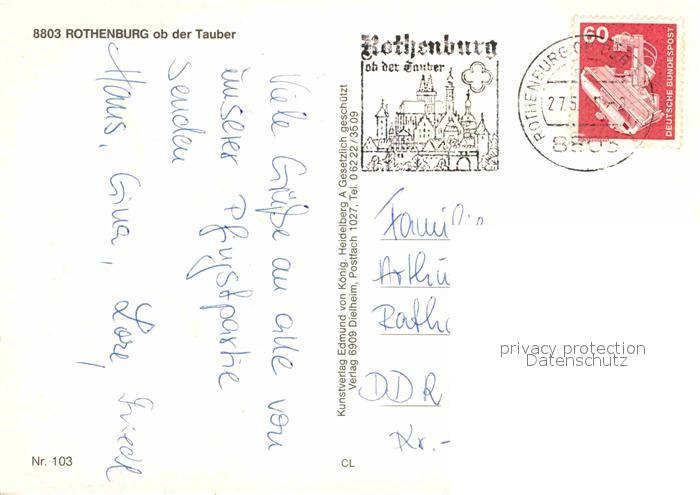 8803 ROTHENBURG ob der Tauber
Viele Grüße an alle von
unserer Pfingstpartie
senden
Hans, Gina, Lore, Friedl
Nr. 103
CL
Kunstverlag Edmund von König, Heidelberg A Gesetzlich geschützt
Verlag 6909 Dielheim, Postfach 1027, Tel. 0 62 22 / 35 09
Rothenburg
ob der Tauber
ROTHENBURG OB DER
27.5.
8803
60
DEUTSCHE BUNDESPOST
Famili
Arthu
Rath
DDR
Kr.-
privacy protection
Datenschutz